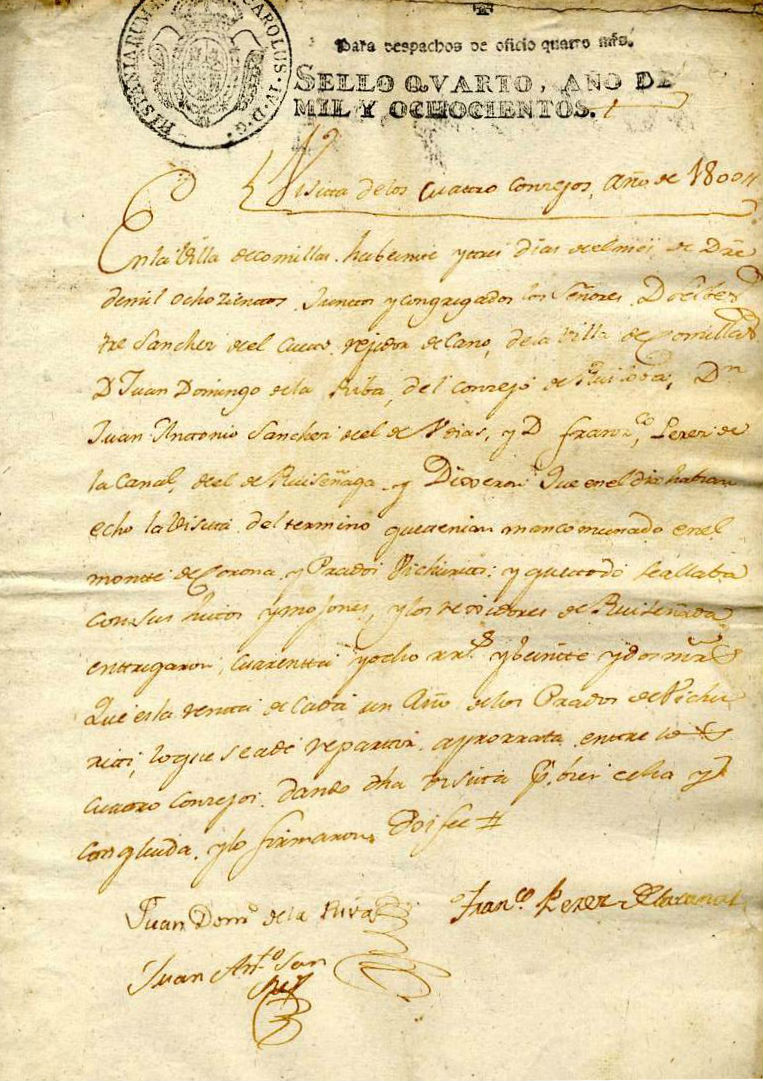 HISPANIARUM CAROLUS · IV · D · G ·
Para despachos de oficio quatro mrs.
SELLO QVARTO, AÑO DE
MIL Y OCHOCIENTOS.
Visita de los cuatro Conzejos, Año de 1800
En la Villa de Comillas. ha beinte y tres dias del mes de Dre
de mil ochozientos. Juntos y congregados los Señores. D
tre Sanchez de el Cueto, rejidor de Cano, de la Villa de Comillas
D Juan Domingo de la Riba, del Conzejo de Ruiloba, Dn
Juan Antonio Sanchez de el de Udias, y D Franco, Perez de
la Canal, de el de Ruiseñaga y Dixeron Que en el dia habian
echo la Visita del termino que tenian mancomunado en el
monte de Corona y Prados Pichiritos: y que todo se allaba
con sus hitos y mojones, y los rejidores de Ruiseñada
entregaron, cuarentta y ocho rrs. y beinte y dos mrs
Que es la rentta de cada un Año de los Prados de Pichi
ritos, lo que se a de repartir aprorrata entre los
cuatro Conzejos. dando dha Visita Pr. bien echa y
concluida, y lo firmaron, Doi fee #
Juan Domo de la Riva
Franco Perez de la canal
Juan Anto San
chez